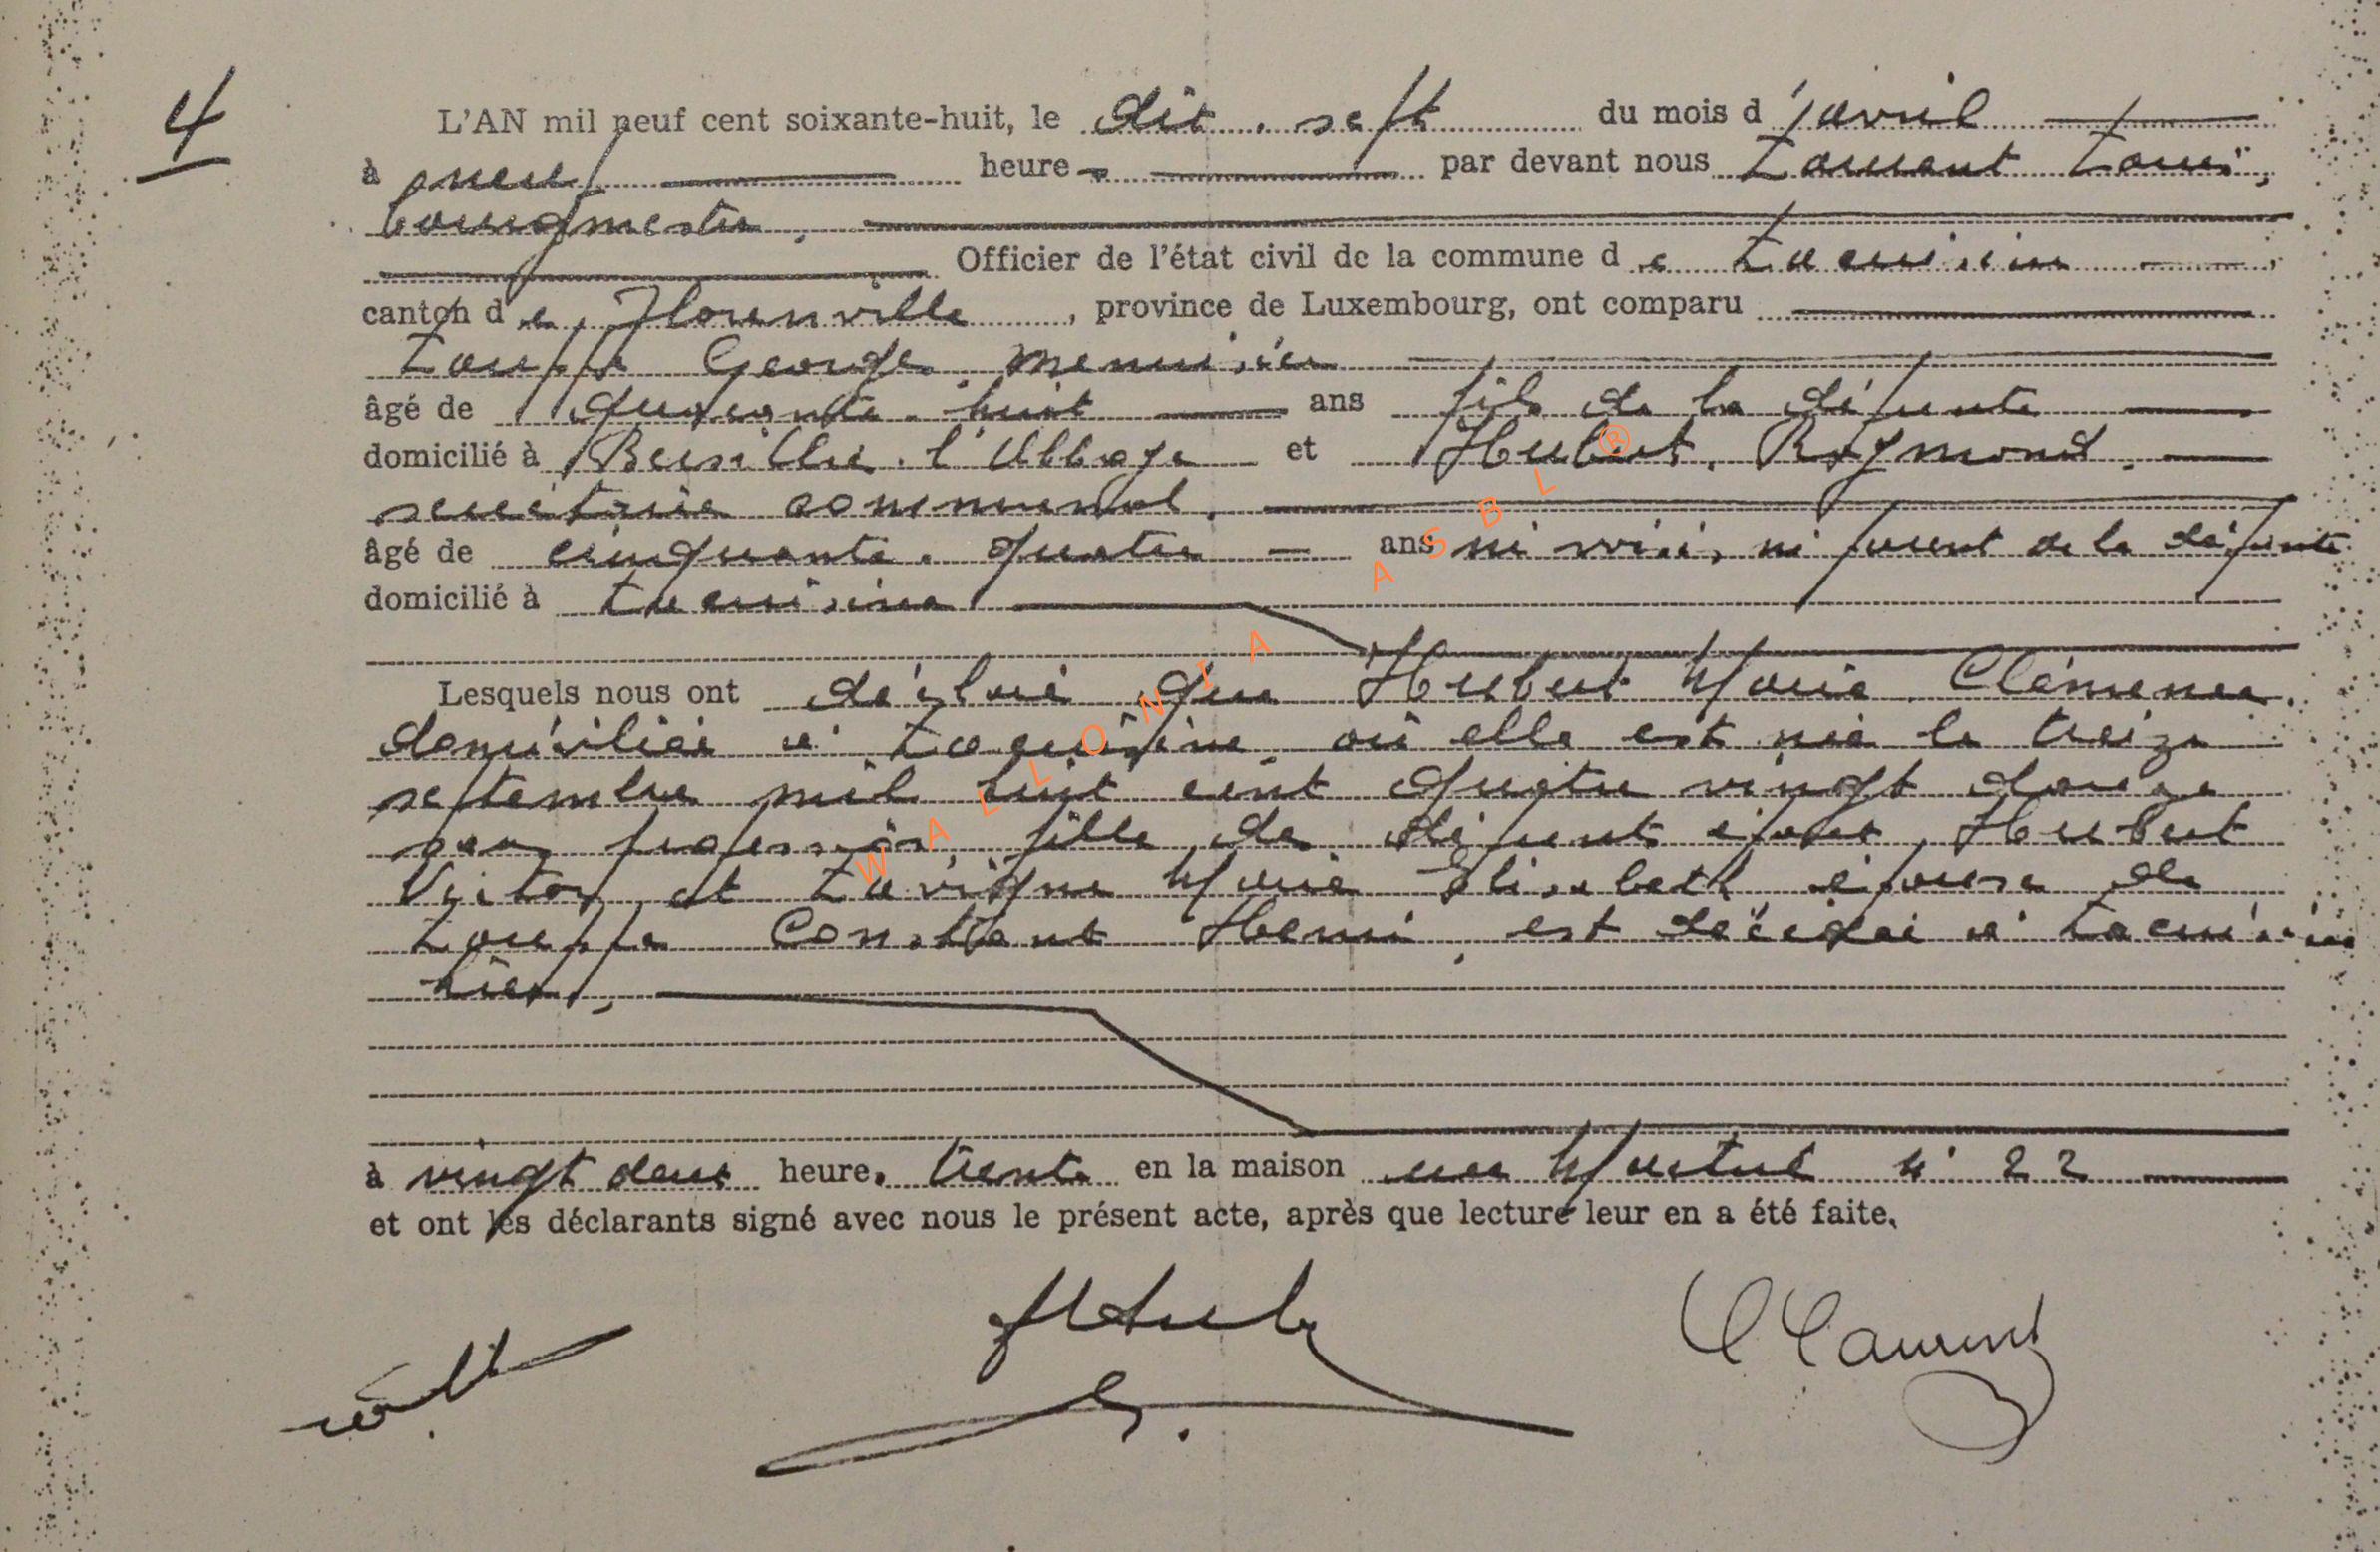 4
L'AN mil neuf cent soixante-huit, le dix-sept du mois d'avril
à neuf heures par devant nous Laurent Louis,
bourgmestre,
Officier de l'état civil de la commune de Lacuisine
canton de Florenville, province de Luxembourg, ont comparu
Louppe Georges menuisier
âgé de quarante-huit ans fils de la défunte
domicilié à l'Abbaye et Hubert, Raymond,
secrétaire communal,
âgé de cinquante-quatre ans ni voisin, ni parent de la défunte
domicilié à Lacuisine
Lesquels nous ont déclaré que Hubert Marie Clémence,
domiciliée à Lacuisine où elle est née le treize
septembre mil huit cent quatre vingt douze
sans profession fille de défunts époux Hubert
Victor et Lavigne Marie Elisabeth épouse de
Louppe Constant Henri, est décédée à Lacuisine
hier,
à vingt deux heures trente en la maison rue N° 22
et ont les déclarants signé avec nous le présent acte, après que lecture leur en a été faite.
Laurent
WALLONIA ASBL ®